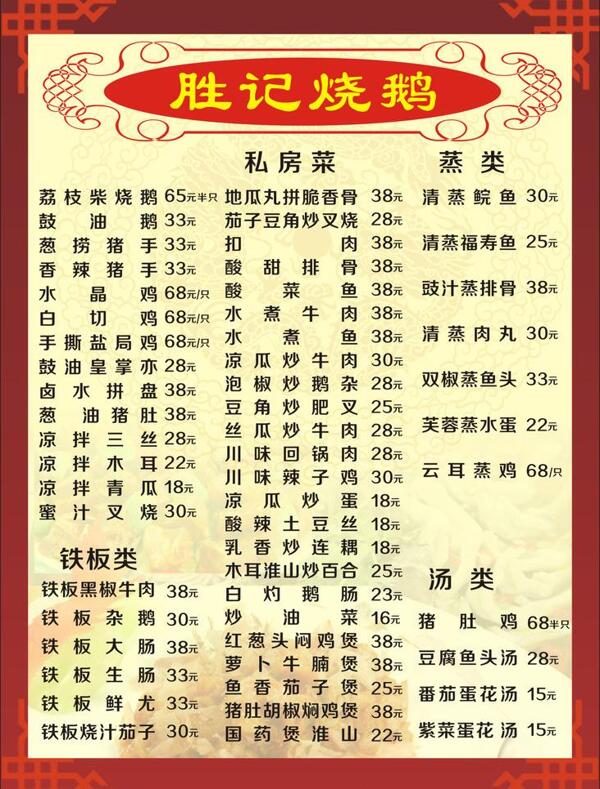 胜记烧鹅
荔枝柴烧鹅 65元半只
鼓油鹅 33元
葱捞猪手 33元
香辣猪手 33元
水晶鸡 68元/只
白切鸡 68元/只
手撕盐局鸡 68元/只
鼓油皇掌亦 28元
卤水拼盘 38元
葱油猪肚 38元
凉拌三丝 28元
凉拌木耳 22元
凉拌青瓜 18元
蜜汁叉烧 30元
铁板类
铁板黑椒牛肉 38元
铁板杂鹅 30元
铁板大肠 38元
铁板生肠 33元
铁板鲜尤 33元
铁板烧汁茄子 30元
私房菜
地瓜丸拼脆香骨 38元
茄子豆角炒叉烧 28元
扣肉 38元
酸甜排骨 38元
酸菜鱼 38元
水煮牛肉 38元
水煮鱼 38元
凉瓜炒牛肉 30元
泡椒炒鹅杂 28元
豆角炒肥叉 25元
丝瓜炒牛肉 28元
川味回锅肉 28元
川味辣子鸡 30元
凉瓜炒蛋 18元
酸辣土豆丝 18元
乳香炒连耦 18元
木耳淮山炒百合 25元
白灼鹅肠 23元
炒油菜 16元
红葱头闷鸡煲 38元
萝卜牛腩煲 38元
鱼香茄子煲 25元
猪肚胡椒焖鸡煲 38元
国药煲淮山 22元
蒸类
清蒸鲩鱼 30元
清蒸福寿鱼 25元
豉汁蒸排骨 38元
清蒸肉丸 30元
双椒蒸鱼头 33元
芙蓉蒸水蛋 22元
云耳蒸鸡 68/只
汤类
猪肚鸡 68半只
豆腐鱼头汤 28元
番茄蛋花汤 15元
紫菜蛋花汤 15元